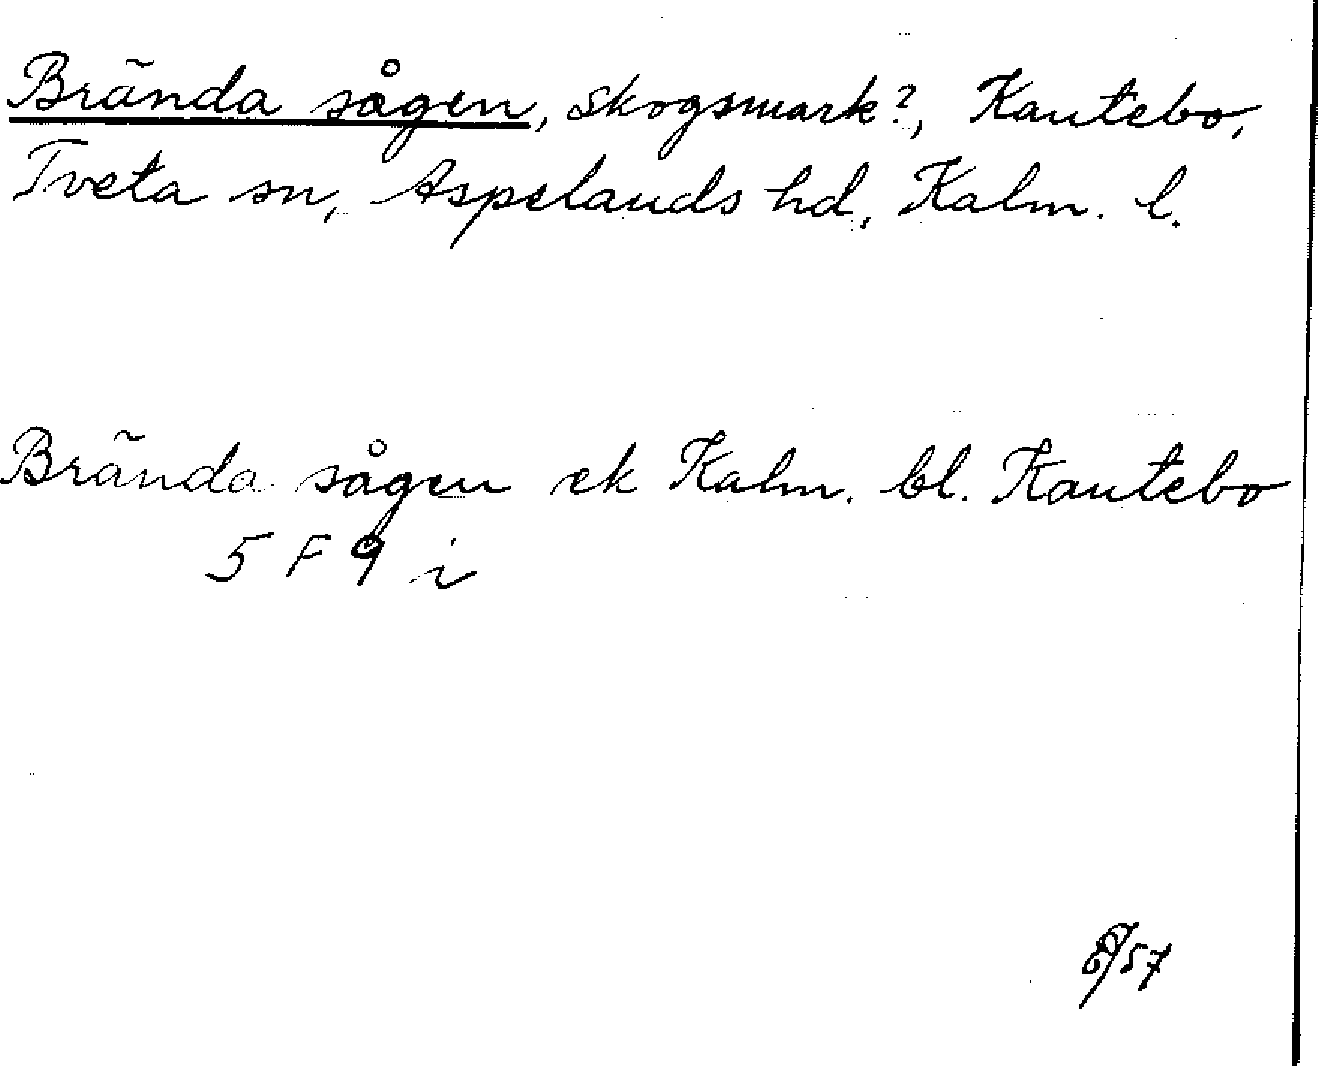 Brända sågen, Skogsmark?, Kantebo,
Tveta sn, Aspelands hd, Kalm. l.
Brända sågen ek Kalm. bl. Kantebo
5 F 9 i
/57